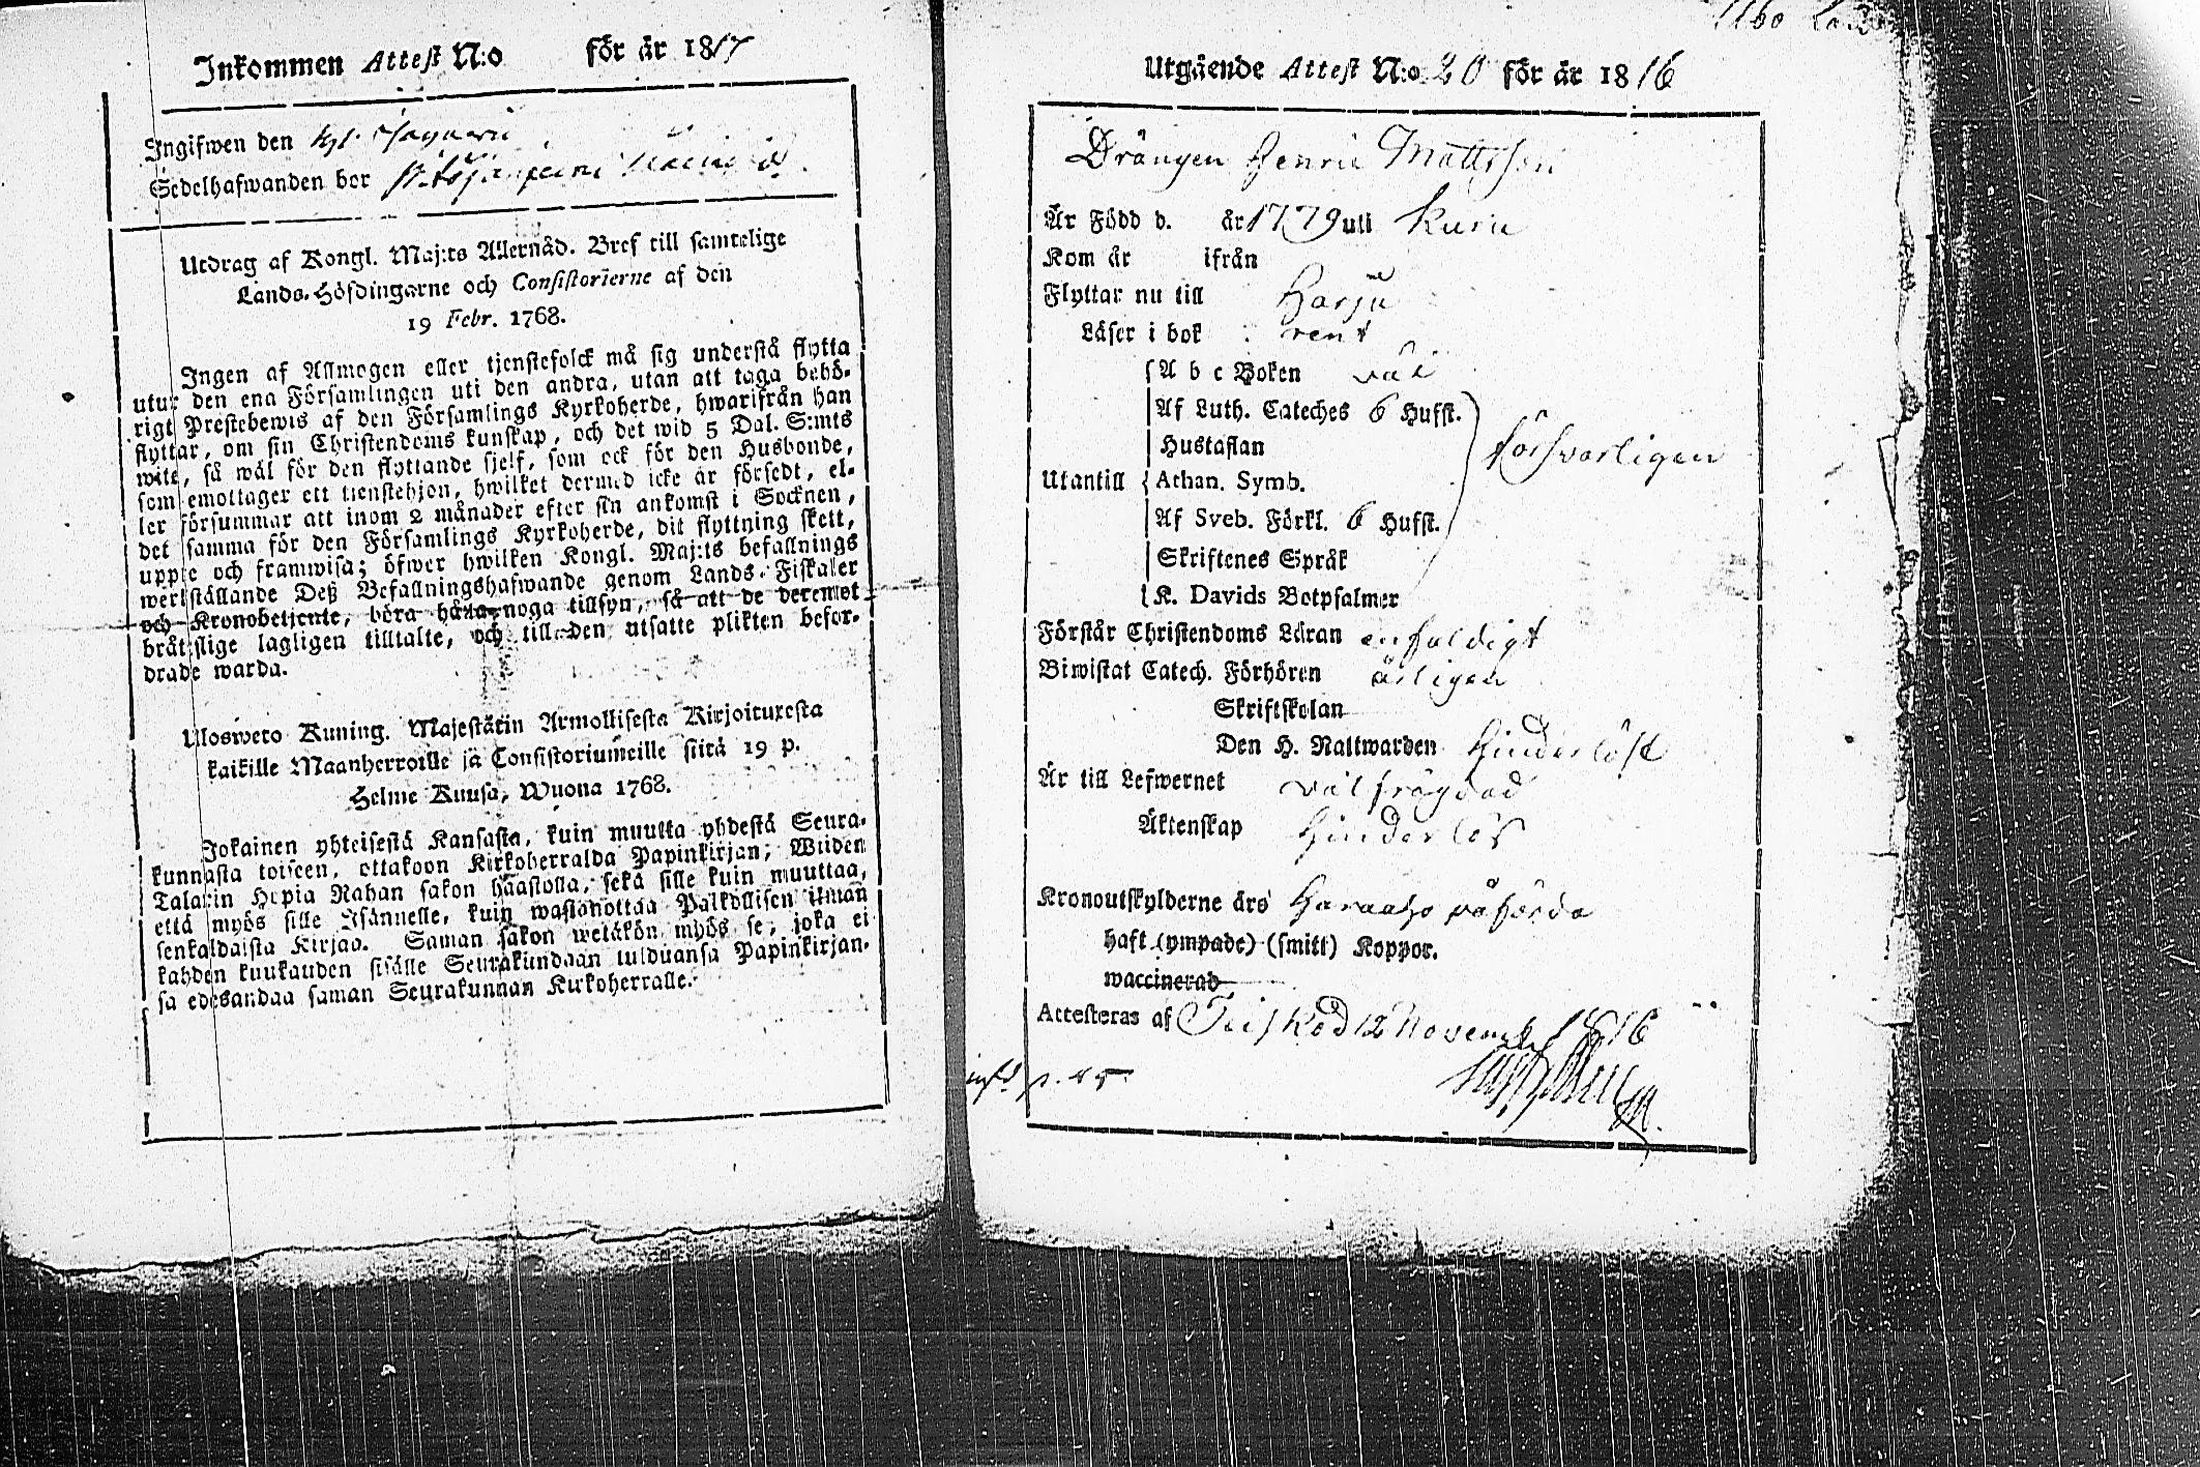 Inkommen Attest N:o för år 1817
Ingifwen den
Sedelhafwanden bor
Utdrag af Kongl. Maj:ts Allernåd. Bref till samtelige
Lands-Höfdingarne och Consistorierne af den
19 Febr. 1768.
Ingen af Allmogen eller tjenstefolck må sig understå flytta
utur den ena Församlingen uti den andra, utan att taga behö-
rigt Prestebewis af den Församlings Kyrkoherde, hwarifrån han
flyttar, om sin Christendoms kunskap, och det wid 5 Dal. S:mts
wite, så wäl för den flyttande sjelf, som ock för den Husbonde,
som emottager ett tienstehjon, hwilket dermed icke är försedt, el-
ler försummar att inom 2 månader efter sin ankomst i Socknen,
det samma för den Församlings Kyrkoherde, dit flyttning skett,
uppte och framwisa; öfwer hwilken Kongl. Maj:ts befallnings
werkställande Deß Befallningshafwande genom Lands-Fiskaler
och Kronobetjente, böra hålla noga tillsyn, så att de deremot
bråtslige lagligen tilltalte, och till den utsatte plikten befor-
drade warda.
Ulosweto Kuning. Majestätin Armollisesta Kirjoituxesta
kaikille Maanherroille ja Consistoriumeille siitä 19 p.
Helme Kuusa, Wuona 1768.
Jokainen yhteisestä Kansasta, kuin muutta yhdestä Seura-
kunnasta toiseen, ottakoon Kirkoherralda Papinkirjan; Wiiden
Talarin Hopia Rahan sakon haastolla, sekä sille kuin muuttaa,
että myös sille Isännelle, kuin wastanottaa Palkollisen ilman
senkaldaista Kirjaa. Saman sakon wetäkön myös se, joka ei
kahden kuukauden sisälle Seurakundaan tulduansa Papinkirjan-
sa edesandaa saman Seurakunnan Kirkoherralle.
Utgående Attest N:o 20 för år 1816
Drängen Henric Mattsson
Är Född d. år 1779 uti Kuru
Kom år ifrån
Flyttar nu till Harju
Läser i bok rent
A b c Boken väl
Af Luth. Cateches 6 Hufst.
Hustaflan försvarligen
Utantill Athan. Symb.
Af Sveb. Förkl. 6 Hufst.
Skriftenes Språk
K. Davids Botpsalmer
Förstår Christendoms Läran enfaldigt
Biwistat Catech. Förhören årligen
Skriftskolan
Den H. Nattwarden Hinderlöst
Är till Lefwernet välfrägdad
Äktenskap Hinderlös
Kronoutskylderne äro
haft (ympade) (smitt) Koppor.
waccinerad
Attesteras af Teisko d 12 Novemb. 1816